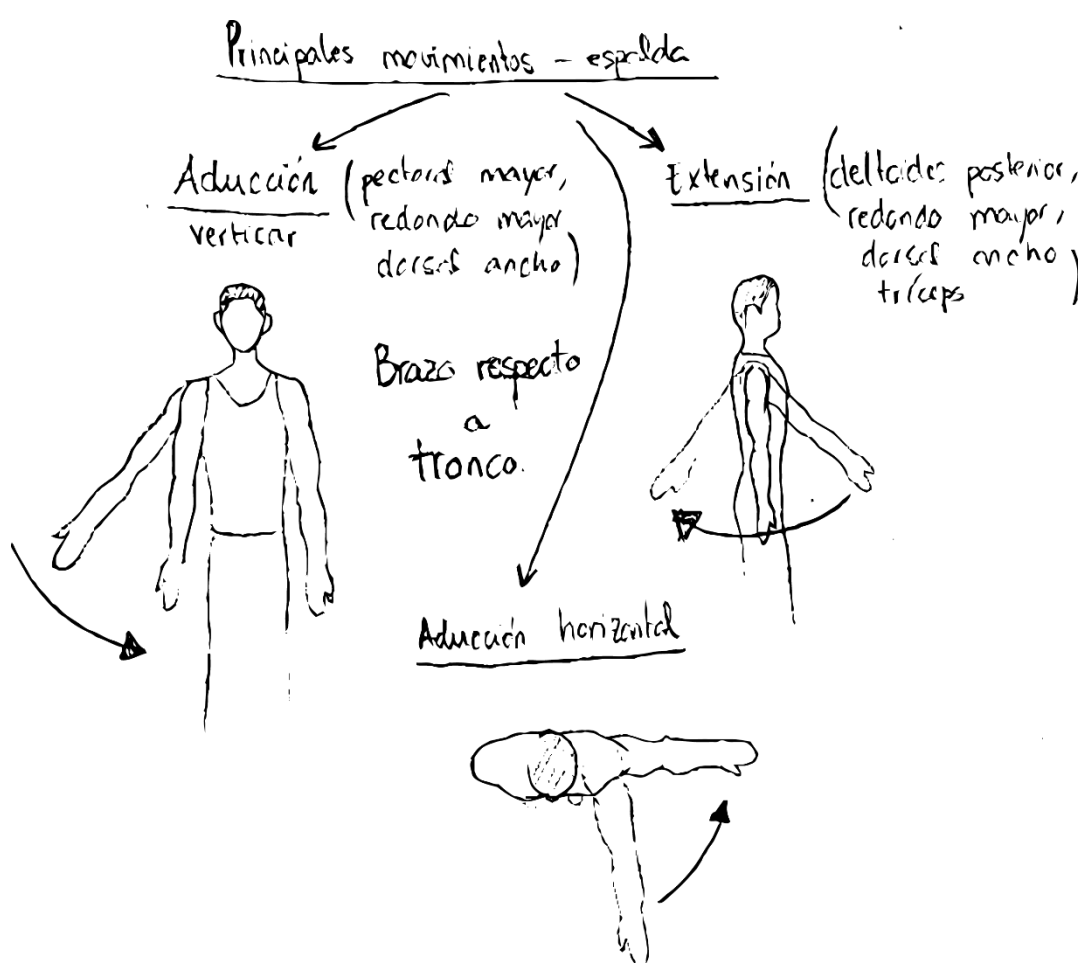 Principales movimientos - espalda
Aducción (pectoral mayor,
verticar
redondo mayor
dorsal ancho)
Extensión (deltoides posterior,
redondo mayor,
dorsal ancho
tríceps)
Brazo respecto
a
tronco.
Aducción horizontal